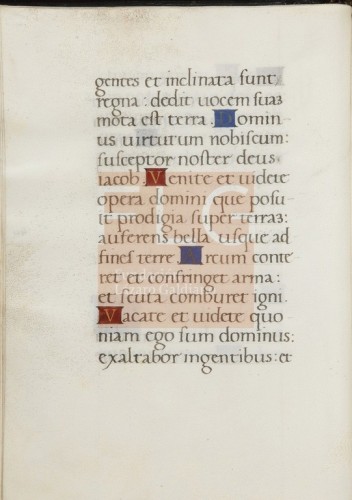 gentes et inclinata sunt
regna: dedit uocem suaʒ
mota est terra. Domin
us uirtutum nobiscum:
susceptor noster deus
iacob. Venite et uidete
opera domini que posu
it prodigia super terraʒ:
auferens bella usque ad
fines terre. Arcum conte
ret et confringet arma:
et scuta comburet igni.
Vacate et uidete quo
niam ego sum dominus:
exaltabor ingentibus: et